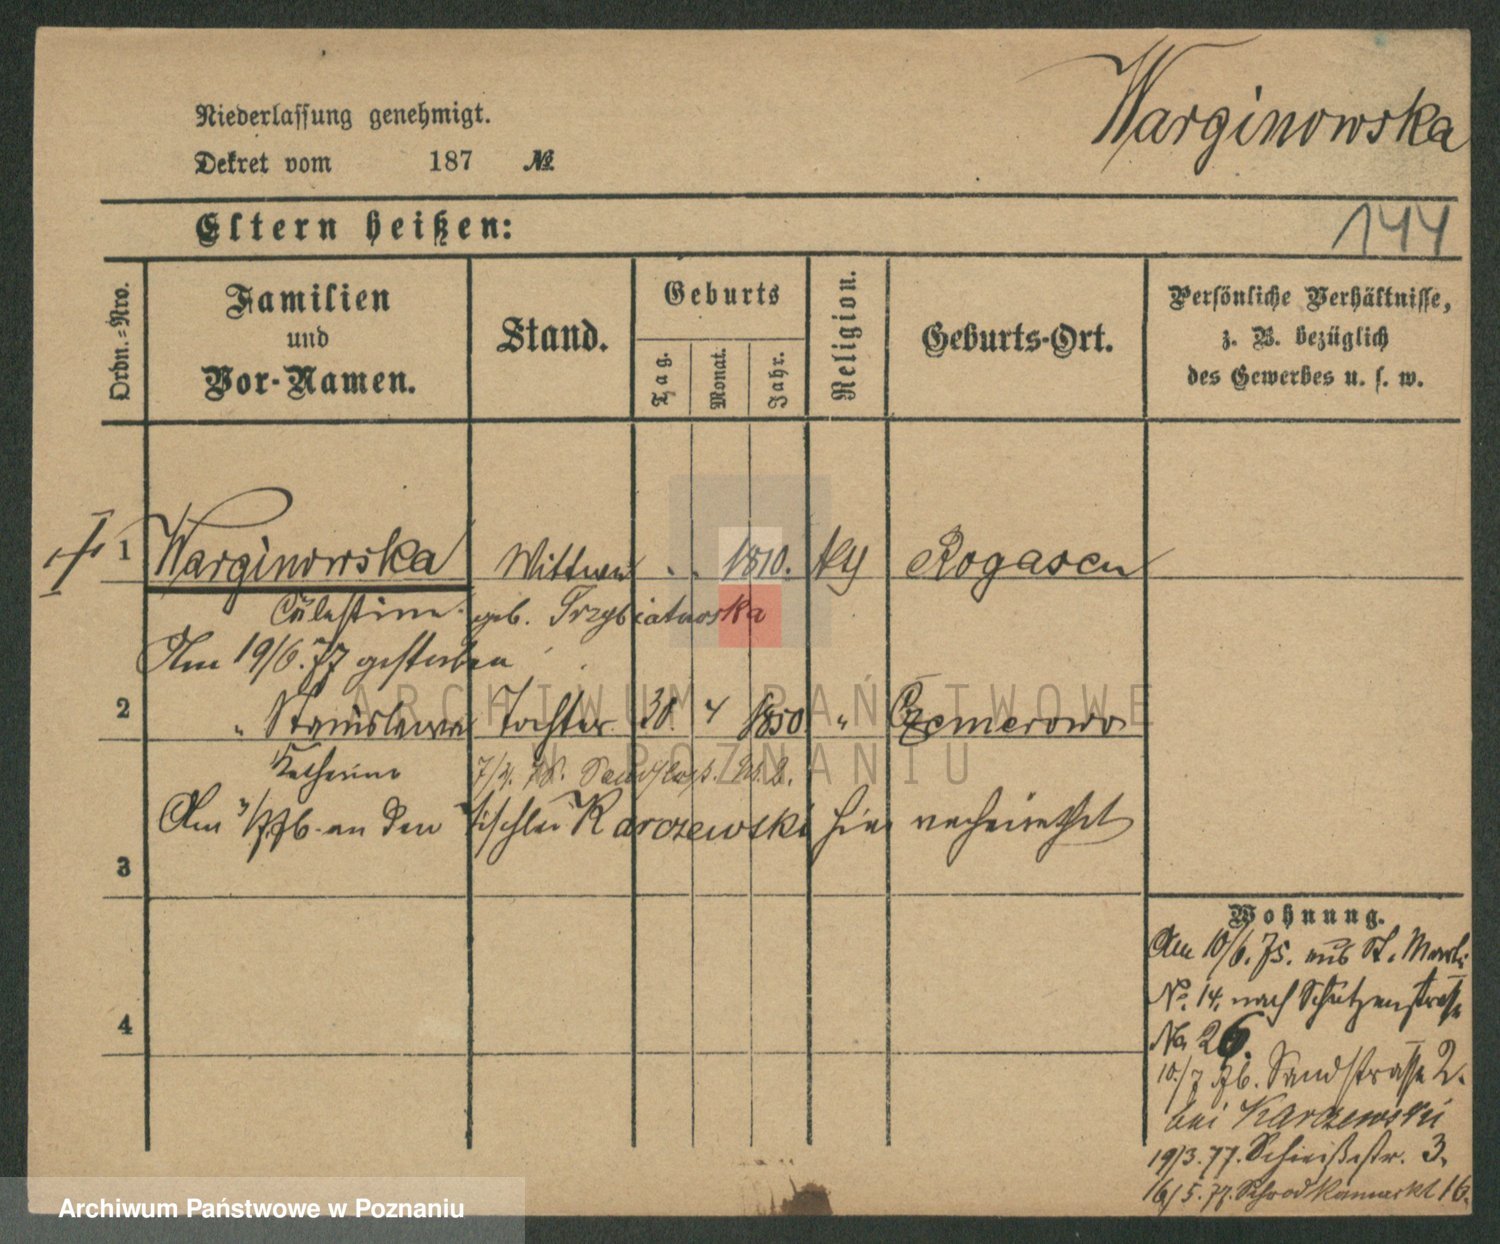 Warginowska
Niederlassung genehmigt.
Dekret vom 187 №
144
Eltern heißen:
Ordn.=Nro.
Familien
und
Vor-Namen.
Stand.
Geburts
Tag.
Monat.
Jahr.
Religion.
Geburts-Ort.
Persönliche Verhältnisse,
z. B. bezüglich
des Gewerbes u. s. w.
1 Warginowska Wittwe . . 1810. Rogasen
Cölestine geb. Trzybiatowska
Am 19/6.77 gestorben
2 " Stanislawa Tochter 30. 4 1850 " Czemerowo
Katharine
Am an den Tischler Karczewski hier verheirathet
3
4
Wohnung.
Am 10/6.75. aus St. Martin
No. 14, nach Schützenstrasse
No 26.
10./7 76. Sandstrasse 2.
bei Karczewski
19/3.77. Schießstr. 3.
16/5.77. Schrodkamarkt 16.
ARCHIWUM PAŃSTWOWE
W POZNANIU
Archiwum Państwowe w Poznaniu